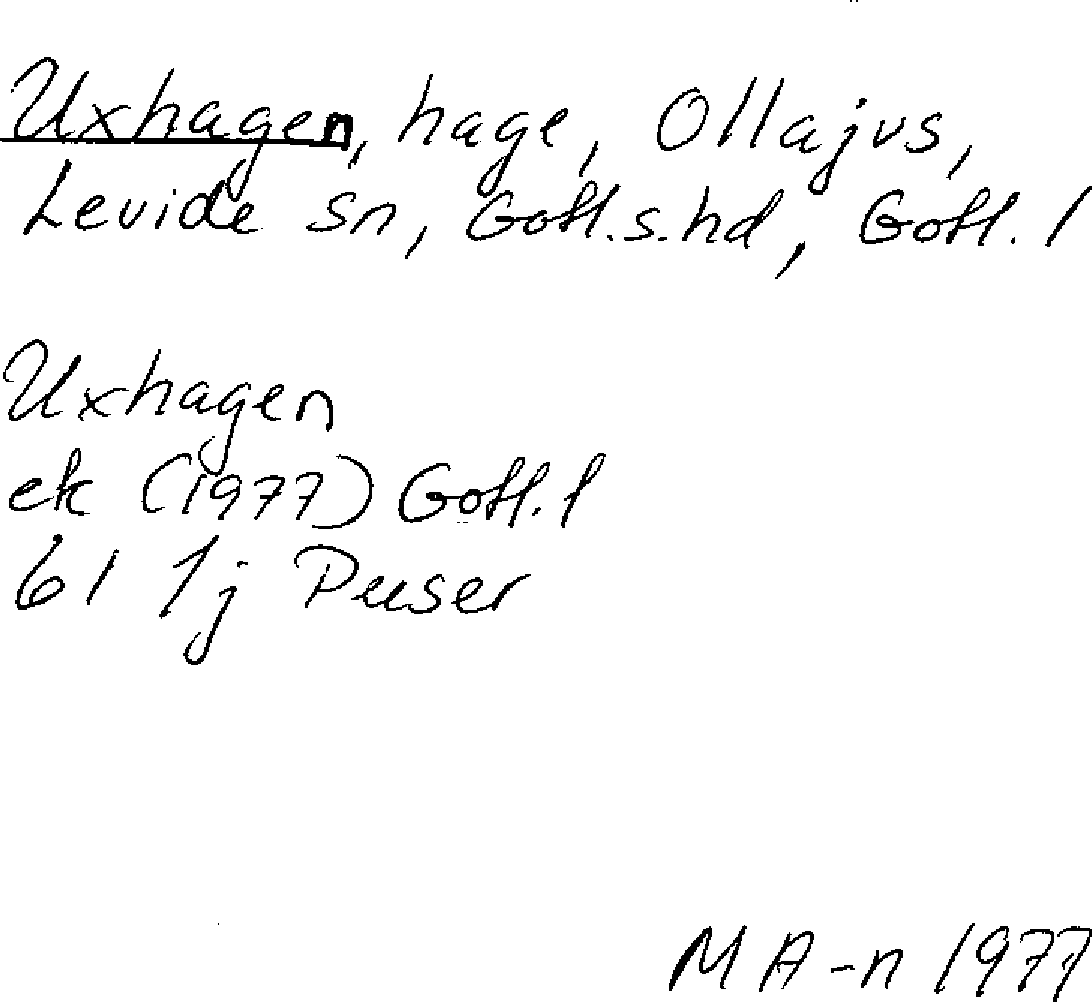 Uxhagen, hage, Ollajvs,
Levide sn, Gotl.s.hd, Gotl. l
Uxhagen
ek (1977) Gotl. l
61 1j Puser
M A-n 1977